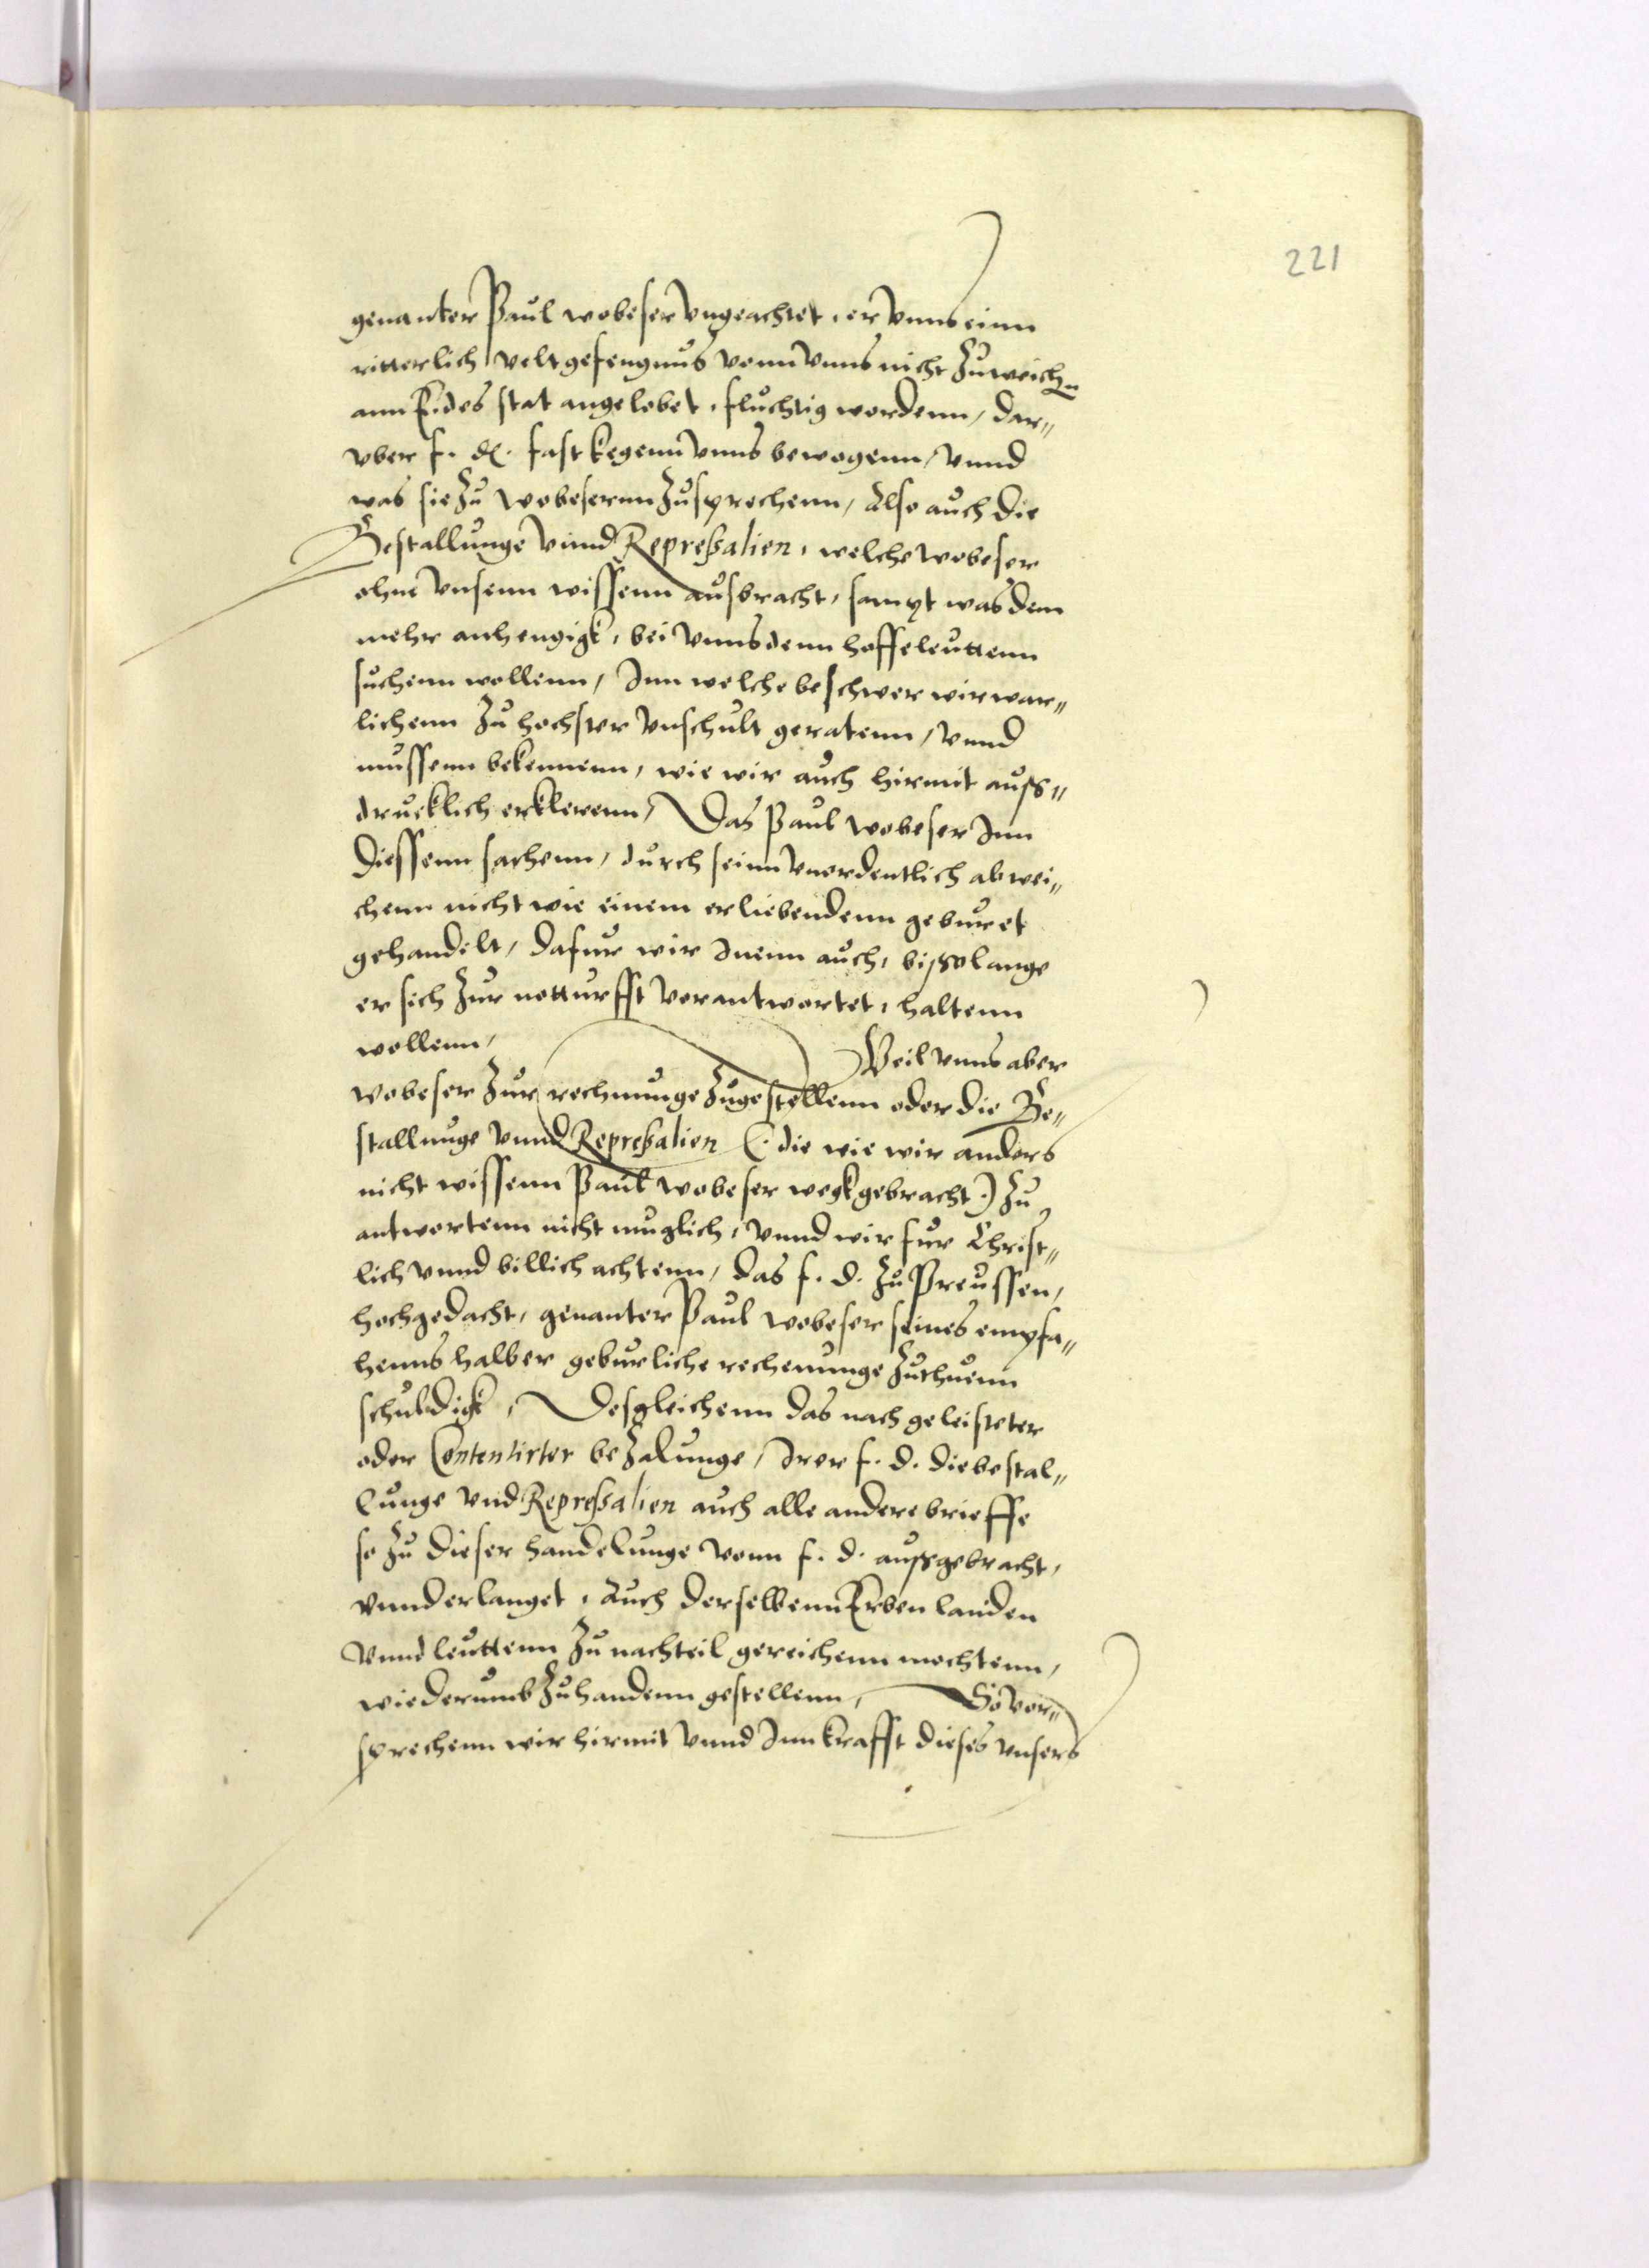 221
genanter Paul wobeser Vngeachtet, er Vnns einn
ritterlich veltgefengnus vonn vnns nicht Zuweichen
ann Eides stat angelobet, fluchtig wordenn, dar„
vber f. d. fast kegenn vnns bewogenn, vnnd
was sie Zu wobesernn Zusprechenn, Also auch die
Bestallunge vnnd Repreßalien, welche wobeser
ohne vnsenn wissenn ausbracht, sampt was dem
mehr anhengigk, bei vnns denn hoffeleuttenn
suchenn wollenn, Inn welche beschwer wir war„
lichenn Zu hochster vnschult geratenn, vnnd
mussenn bekennenn, wie wir auch hirmit auß„
drucklich erklerenn, Das Paul wobeser Inn
diessenn sachenn, durch seinn vnordentlich abwei„
chenn nicht wie einem erliebendenn geburet
gehandelt, dafur wir Inenn auch, bißolange
er sich Zur notturfft verantwortet, haltenn
wollenn, Weil vnns aber
wobeser Zur rechnunge Zugestellenn oder die Be„
stallunge vnnd Repreßalien (: die wie wir anders
nicht wissenn Paul wobeser wegkgebracht :) Zu
antwortenn nicht muglich, vnnd wir fur Christ„
lich vnnd billich achtenn, das f. d. Zu Preussen,
hochgedacht, genanter Paul wobeser seines empfa„
henns halber geburliche rechenunge Zuthuenn
schuldigk, Desgleichenn das nach geleisteter
oder Contentirter beZalunge, Irer f. d. die bestal„
lunge vnd Repreßalien auch alle andere brieffe
so Zu dieser handelunge vonn f. d. außgebracht,
vnnd erlanget, Auch derselbenn Erben landen
vnnd leuttenn Zu nachteil gereichenn mochtenn,
wiederumb Zuhandenn gestellenn, So vor„
sprechenn wir hirmit vnnd Inn krafft dieses vnsers